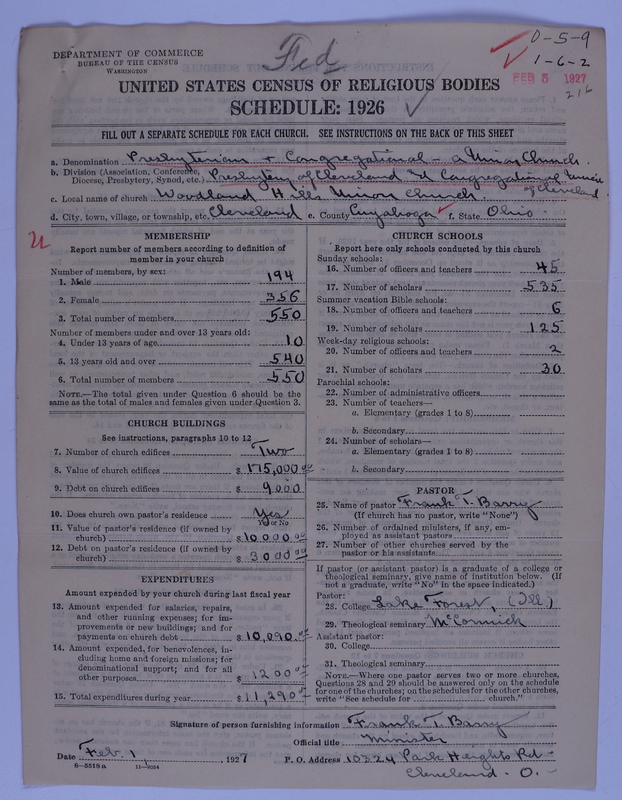 DEPARTMENT OF COMMERCE
BUREAU OF THE CENSUS
WASHINGTON
Fed
0-5-9
1-6-2
FEB 5 1927
216
UNITED STATES CENSUS OF RELIGIOUS BODIES
SCHEDULE: 1926
FILL OUT A SEPARATE SCHEDULE FOR EACH CHURCH. SEE INSTRUCTIONS ON THE BACK OF THIS SHEET
a. Denomination Presbyterian + Congregational - a Union Church.
b. Division (Association, Conference, Diocese, Presbytery, Synod, etc.) Presbytery of Cleveland and Congregational Union of Cleveland
c. Local name of church Woodland Hills Union Church.
d. City, town, village, or township, etc. Cleveland e. County Cuyahoga f. State Ohio.
MEMBERSHIP
Report number of members according to definition of
member in your church
Number of members, by sex:
1. Male 194
2. Female 356
3. Total number of members 550
Number of members under and over 13 years old:
4. Under 13 years of age 10
5. 13 years old and over 540
6. Total number of members 550
NOTE.—The total given under Question 6 should be the
same as the total of males and females given under Question 3.
CHURCH BUILDINGS
See instructions, paragraphs 10 to 12
7. Number of church edifices Two
8. Value of church edifices $ 175,000.00
9. Debt on church edifices $ 9000
10. Does church own pastor's residence Yes
Yes or No
11. Value of pastor's residence (if owned by
church) $ 10,000.00
12. Debt on pastor's residence (if owned by
church) $ 3000.00
EXPENDITURES
Amount expended by your church during last fiscal year
13. Amount expended for salaries, repairs,
and other running expenses; for im-
provements or new buildings; and for
payments on church debt $ 10,090.00
14. Amount expended, for benevolences, in-
cluding home and foreign missions; for
denominational support; and for all
other purposes $ 1200.00
15. Total expenditures during year $ 11,290.00
CHURCH SCHOOLS
Report here only schools conducted by this church
Sunday schools:
16. Number of officers and teachers 45
17. Number of scholars 535
Summer vacation Bible schools:
18. Number of officers and teachers 6
19. Number of scholars 125
Week-day religious schools:
20. Number of officers and teachers 2
21. Number of scholars 30
Parochial schools:
22. Number of administrative officers
23. Number of teachers—
a. Elementary (grades 1 to 8)
b. Secondary
24. Number of scholars—
a. Elementary (grades 1 to 8)
b. Secondary
PASTOR
25. Name of pastor Frank T. Barry
(If church has no pastor, write "None")
26. Number of ordained ministers, if any, em-
ployed as assistant pastors
27. Number of other churches served by the
pastor or his assistants
If pastor (or assistant pastor) is a graduate of a college or
theological seminary, give name of institution below. (If
not a graduate, write "No" in the space indicated.)
Pastor:
28. College Lake Forest, (Ill)
29. Theological seminary McCormick
Assistant pastor:
30. College
31. Theological seminary
NOTE.—Where one pastor serves two or more churches,
Questions 28 and 29 should be answered only on the schedule
for one of the churches; on the schedules for the other churches,
write "See schedule for church."
Signature of person furnishing information Frank T. Barry
Official title Minister
Date Feb. 1, 1927 P. O. Address 10324 Park Heights Rd -
Cleveland - O. -
8-5518a 11-2024